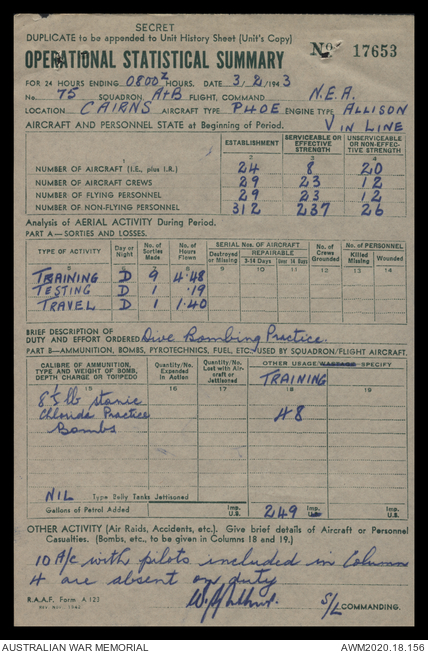 SECRET
DUPLICATE to be appended to Unit History Sheet (Unit's Copy)
OPERATIONAL STATISTICAL SUMMARY No. 17653
FOR 24 HOURS ENDING 0800Z HOURS, DATE 3/2/1943
No. 75 SQUADRON, A+B FLIGHT, COMMAND N.E.A.
LOCATION CAIRNS AIRCRAFT TYPE P40E ENGINE TYPE ALLISON
AIRCRAFT AND PERSONNEL STATE at Beginning of Period. V IN LINE
ESTABLISHMENT SERVICEABLE OR EFFECTIVE STRENGTH UNSERVICEABLE OR NON-EFFECTIVE STRENGTH
1 2 3 4
NUMBER OF AIRCRAFT (I.E., plus I.R.) 24 8 20
NUMBER OF AIRCRAFT CREWS 29 23 12
NUMBER OF FLYING PERSONNEL 29 23 12
NUMBER OF NON-FLYING PERSONNEL 312 237 26
Analysis of AERIAL ACTIVITY During Period.
PART A—SORTIES AND LOSSES.
TYPE OF ACTIVITY Day or Night No. of Sorties Made No. of Hours Flown SERIAL Nos. OF AIRCRAFT Destroyed or Missing REPAIRABLE 3-14 Days Over 14 Days No. of Crews Grounded No. of PERSONNEL Killed Missing Wounded
8 9 10 11 12 13 14
TRAINING D 9 4.48
TESTING D 1 .19
TRAVEL D 1 1.40
BRIEF DESCRIPTION OF
DUTY AND EFFORT ORDERED Dive Bombing Practice.
PART B—AMMUNITION, BOMBS, PYROTECHNICS, FUEL, ETC., USED BY SQUADRON/FLIGHT AIRCRAFT.
CALIBRE OF AMMUNITION, TYPE AND WEIGHT OF BOMB, DEPTH CHARGE OR TORPEDO Quantity/No. Expended in Action Quantity/No. Lost with Aircraft or Jettisoned OTHER USAGE/WASTAGE—SPECIFY
TRAINING
15 16 17 18 19
8½ lb stanic
Chloride Practice 48
Bombs
NIL Type Belly Tanks Jettisoned
Gallons of Petrol Added Imp. U.S. 249 Imp. U.S. Imp. U.S.
OTHER ACTIVITY (Air Raids, Accidents, etc.). Give brief details of Aircraft or Personnel
Casualties. (Bombs, etc., to be given in Columns 18 and 19.)
10 A/c with pilots included in Column
4 are absent on duty
R.A.A.F. Form A 123
S/L COMMANDING.
AUSTRALIAN WAR MEMORIAL AWM2020.18.156